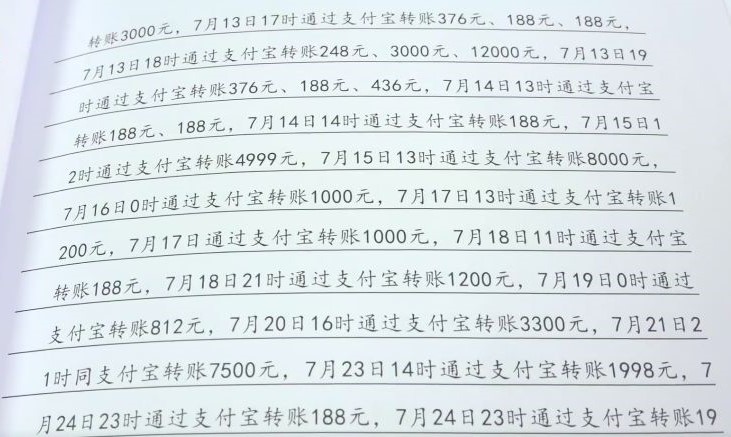 转账3000元，7月13日17时通过支付宝转账376元、188元、188元，
7月13日18时通过支付宝转账248元、3000元、12000元，7月13日19
时通过支付宝转账376元、188元、436元，7月14日13时通过支付宝
转账188元、188元，7月14日14时通过支付宝转账188元，7月15日1
2时通过支付宝转账4999元，7月15日13时通过支付宝转账8000元，
7月16日0时通过支付宝转账1000元，7月17日13时通过支付宝转账1
200元，7月17日通过支付宝转账1000元，7月18日11时通过支付宝
转账188元，7月18日21时通过支付宝转账1200元，7月19日0时通过
支付宝转账812元，7月20日16时通过支付宝转账3300元，7月21日2
1时同支付宝转账7500元，7月23日14时通过支付宝转账1998元，7
月24日23时通过支付宝转账188元，7月24日23时通过支付宝转账19